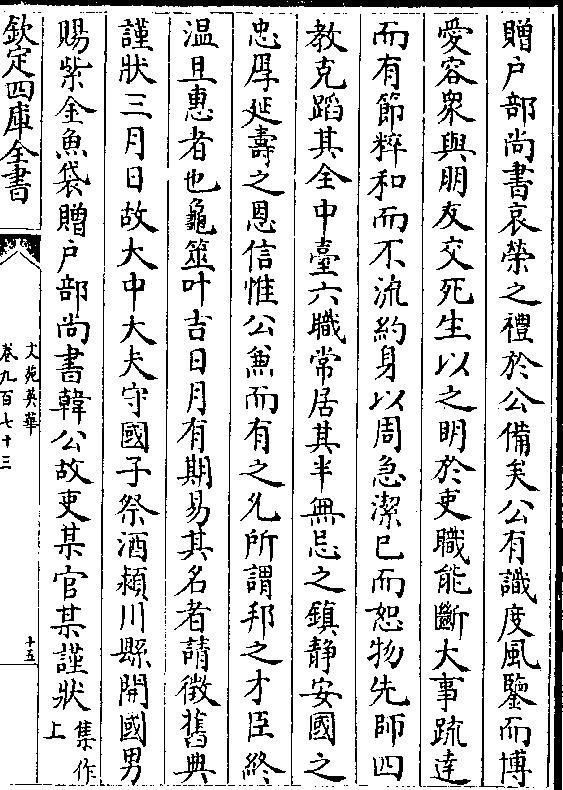 贈户部尚書哀榮之禮於公備矣公有識度風鑒而博
愛容衆與朋友交死生以之明於吏職能斷大事疏達
而有節粹和而不流約身以周急潔已而恕物先師四
教克蹈其全中臺六職常居其半無忌之鎮靜安國之
忠厚延壽之恩信惟公兼而有之允所謂邦之才臣終
温且惠者也龜筮叶吉日月有期易其名者請徵舊典
謹狀三月日故大中大夫守國子祭酒潁川縣開國男
賜紫金魚袋贈户部尚書韓公故吏某官某謹狀集作上
欽定四庫全書
文苑英華
卷九百七十三
十五